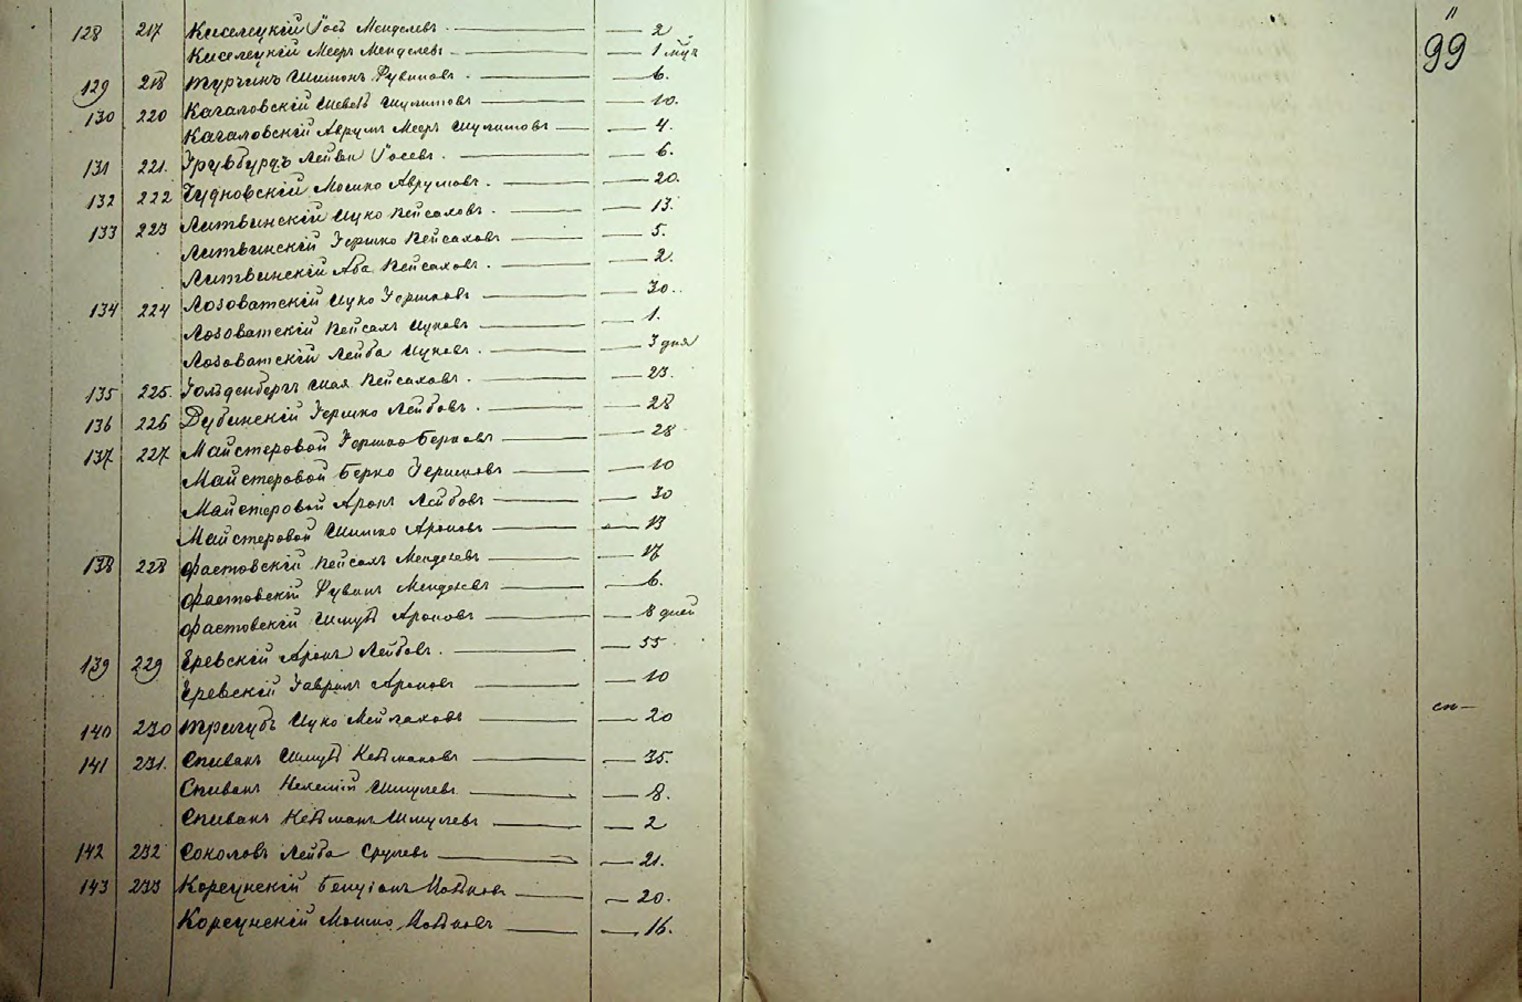 128 217 Киселецкій Іосъ Менделевъ — 2
Киселецкій Мееръ Менделевъ — 1 мѣс
129 218 Турчикъ Шимонъ Рувиновъ — 6.
130 220 Кагаловскій Шевель Шулимовъ — 10.
Кагаловскій Аврумъ Мееръ Шулимовъ — 4.
131 221. Лейви Іосевъ — 6.
132 222 Чудновскій Мошко Аврумовъ — 20.
133 223 Литвинскій Ицко Пейсаховъ — 13.
Литвинскій Гершко Пейсаховъ — 5.
Литвинскій Аба Пейсаховъ — 2.
134 224 Лозоватскій Ицко Гершковъ — 30.
Лозоватскій Пейсахъ Ицковъ — 1.
Лозоватскій Лейба Ицковъ — 3 дня
135 225. Гольденбергъ Шая Пейсаховъ — 23.
136 226 Дубинскій Гершко Лейбовъ — 28
137 227 Майстеровой Гершко Берковъ — 28
Майстеровой Берко Гершковъ — 10
Майстеровой Аронъ Лейбовъ — 30
Майстеровой Шимко Ароновъ — 13
138 228 Фастовскій Пейсахъ Менделевъ — 17
Фастовскій Рувинъ Менделевъ — 6.
Фастовскій Шмуль Ароновъ — 8 дней
139 229 Еревскій Аронъ Лейбовъ — 55
Еревскій Гаврилъ Ароновъ — 10
140 230 Трегубъ Ицко Мейлаховъ — 20
141 231. Спивакъ Шмуль Кельмановъ — 35.
Спивакъ Нехемій Шмулевъ — 8.
Спивакъ Кельманъ Шмулевъ — 2
142 232 Соколовъ Лейба Срулевъ — 21.
143 233 Корсунскій Бенціонъ — 20.
Корсунскій Мошко — 16.
99